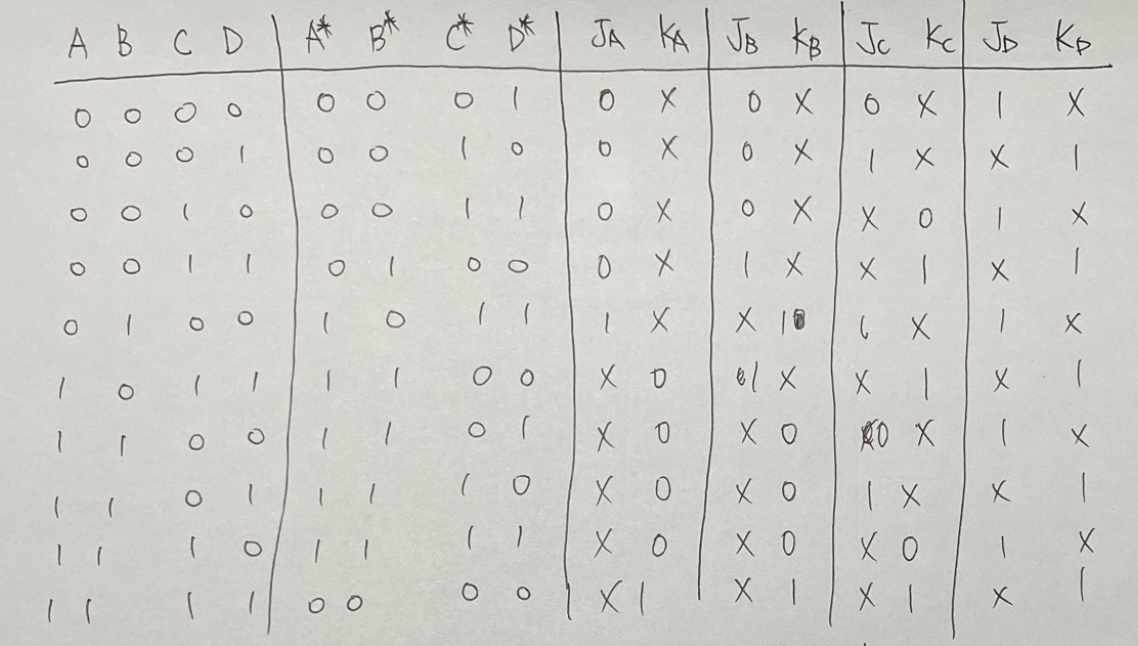 A B C D A* B* C* D* JA KA JB KB JC KC JD KD
0 0 0 0 0 0 0 1 0 X 0 X 0 X 1 X
0 0 0 1 0 0 1 0 0 X 0 X 1 X X 1
0 0 1 0 0 0 1 1 0 X 0 X X 0 1 X
0 0 1 1 0 1 0 0 0 X 1 X X 1 X 1
0 1 0 0 1 0 1 1 1 X X 1 1 X 1 X
1 0 1 1 1 1 0 0 X 0 1 X X 1 X 1
1 1 0 0 1 1 0 1 X 0 X 0 0 X 1 X
1 1 0 1 1 1 1 0 X 0 X 0 1 X X 1
1 1 1 0 1 1 1 1 X 0 X 0 X 0 1 X
1 1 1 1 0 0 0 0 X 1 X 1 X 1 X 1